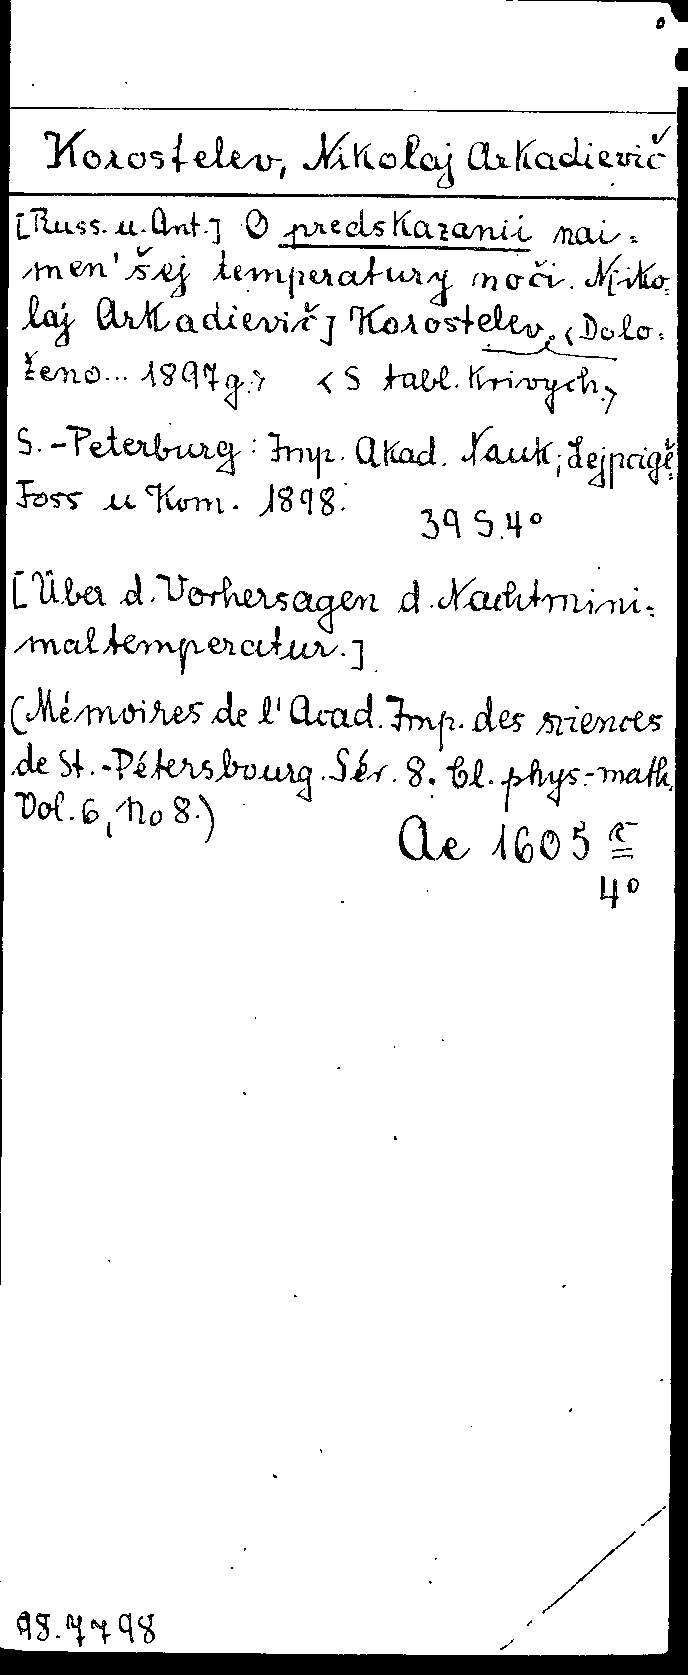 Korostelev, Nikolaj Arkadievič
[Russ. u. Ant.] O predskazanii nai=
men'šej temperatury noči. N[iko=
laj Arkadievič] Korostelev. <Dolo=
ženo... 1897 g.> <S tabl. Krivych.>
S.-Peterburg: Imp. Akad. Nauk; Lejpcigě:
Foss u Kom. 1898.
39 S. 4°
[Über d. Vorhersagen d. Nachtmini=
maltemperatur.]
(Mémoires de l'Acad. Imp. des sciences
de St.-Pétersbourg. Sér. 8. Cl. phys.-math.
Vol. 6, No 8.)
Ae 1605
4°
98.7798